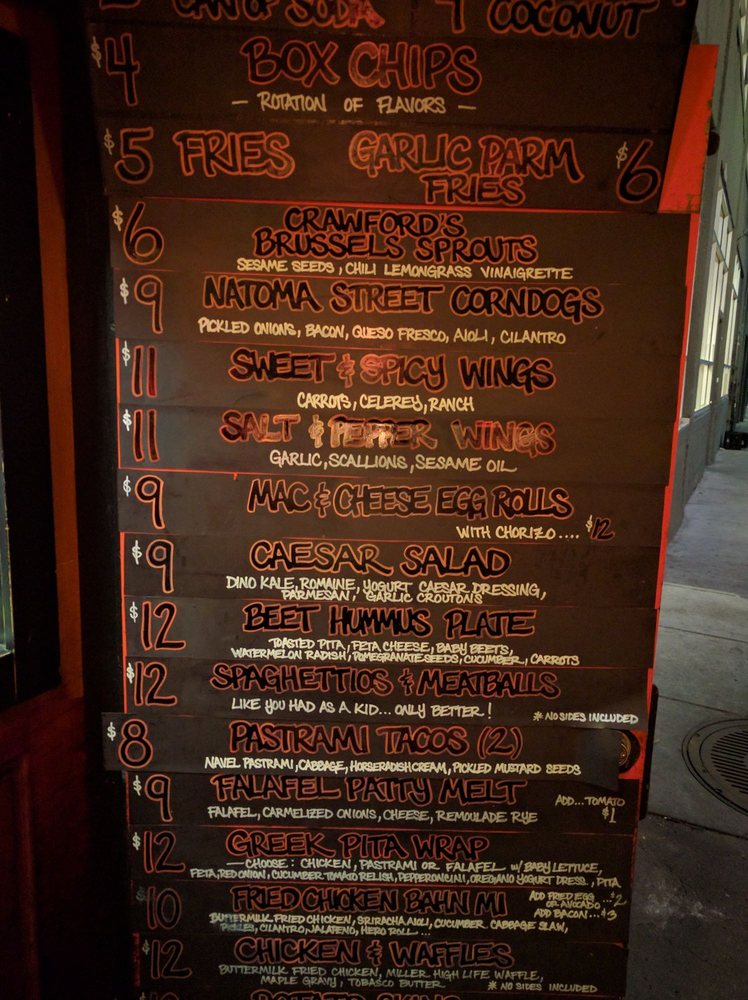 CAN OF SODA COCONUT
$4 BOX CHIPS
— ROTATION OF FLAVORS —
$5 FRIES GARLIC PARM FRIES $6
$6 CRAWFORD'S
BRUSSELS SPROUTS
SESAME SEEDS, CHILI LEMONGRASS VINAIGRETTE
$9 NATOMA STREET CORNDOGS
PICKLED ONIONS, BACON, QUESO FRESCO, AIOLI, CILANTRO
$11 SWEET & SPICY WINGS
CARROTS, CELEREY, RANCH
$11 SALT & PEPPER WINGS
GARLIC, SCALLIONS, SESAME OIL
$9 MAC & CHEESE EGG ROLLS
WITH CHORIZO.... $12
$9 CAESAR SALAD
DINO KALE, ROMAINE, YOGURT CAESAR DRESSING,
PARMESAN, GARLIC CROUTONS
$12 BEET HUMMUS PLATE
TOASTED PITA, FETA CHEESE, BABY BEETS,
WATERMELON RADISH, POMEGRANATE SEEDS, CUCUMBER, CARROTS
$12 SPAGHETTIOS & MEATBALLS
LIKE YOU HAD AS A KID... ONLY BETTER! * NO SIDES INCLUDED
$8 PASTRAMI TACOS (2)
NAVEL PASTRAMI, CABBAGE, HORSERADISH CREAM, PICKLED MUSTARD SEEDS
$9 FALAFEL PATTY MELT ADD...TOMATO $1
FALAFEL, CARMELIZED ONIONS, CHEESE, REMOULADE RYE
$12 GREEK PITA WRAP
— CHOOSE: CHICKEN, PASTRAMI OR FALAFEL W/ BABY LETTUCE,
FETA, RED ONION, CUCUMBER TOMATO RELISH, PEPPERONCINI, OREGANO YOGURT DRESS., PITA
$10 FRIED CHICKEN BAHN MI ADD FRIED EGG OR AVOCADO...$2
ADD BACON...$3
BUTTERMILK FRIED CHICKEN, SRIRACHA AIOLI, CUCUMBER CABBAGE SLAW,
PICKLES, CILANTRO, JALAPENO, HERO ROLL...
$12 CHICKEN & WAFFLES
BUTTERMILK FRIED CHICKEN, MILLER HIGH LIFE WAFFLE,
MAPLE GRAVY, TOBASCO BUTTER * NO SIDES INCLUDED